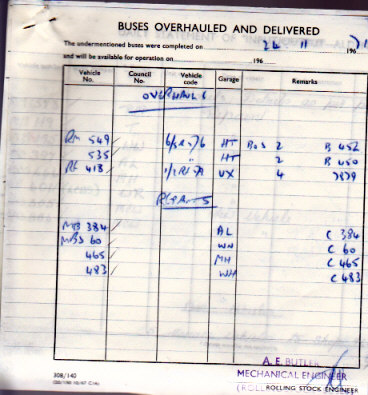 BUSES OVERHAULED AND DELIVERED
The undermentioned buses were completed on 24 11 1967
and will be available for operation on 196
Vehicle No. Council No. Vehicle code Garage Remarks
OVERHAULS
RM 549 HT BoS 2 B 452
535 " HT 2 B 450
RF 418 UX 4
REPAINTS
MB 384 AL C 384
MBS 60 WN C 60
465 MH C 465
483 WH C 483
308/140
A. E. BUTLER
MECHANICAL ENGINEER
(ROLL ROLLING STOCK ENGINEER